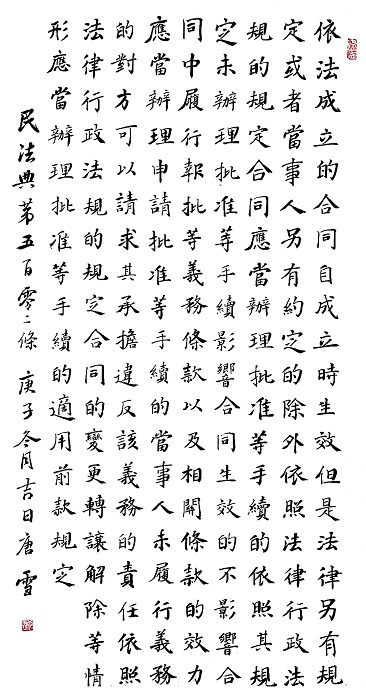 依法成立的合同自成立時生效但是法律另有規
定或者當事人另有約定的除外依照法律行政法
規的規定合同應當辦理批准等手續的依照其規
定未辦理批准等手續影響合同生效的不影響合
同中履行報批等義務條款以及相關條款的效力
應當辦理申請批准等手續的當事人未履行義務
的對方可以請求其承擔違反該義務的責任依照
法律行政法規的規定合同的變更轉讓解除等情
形應當辦理批准等手續的適用前款規定
民法典第五百零二條 庚子冬月吉日唐雪